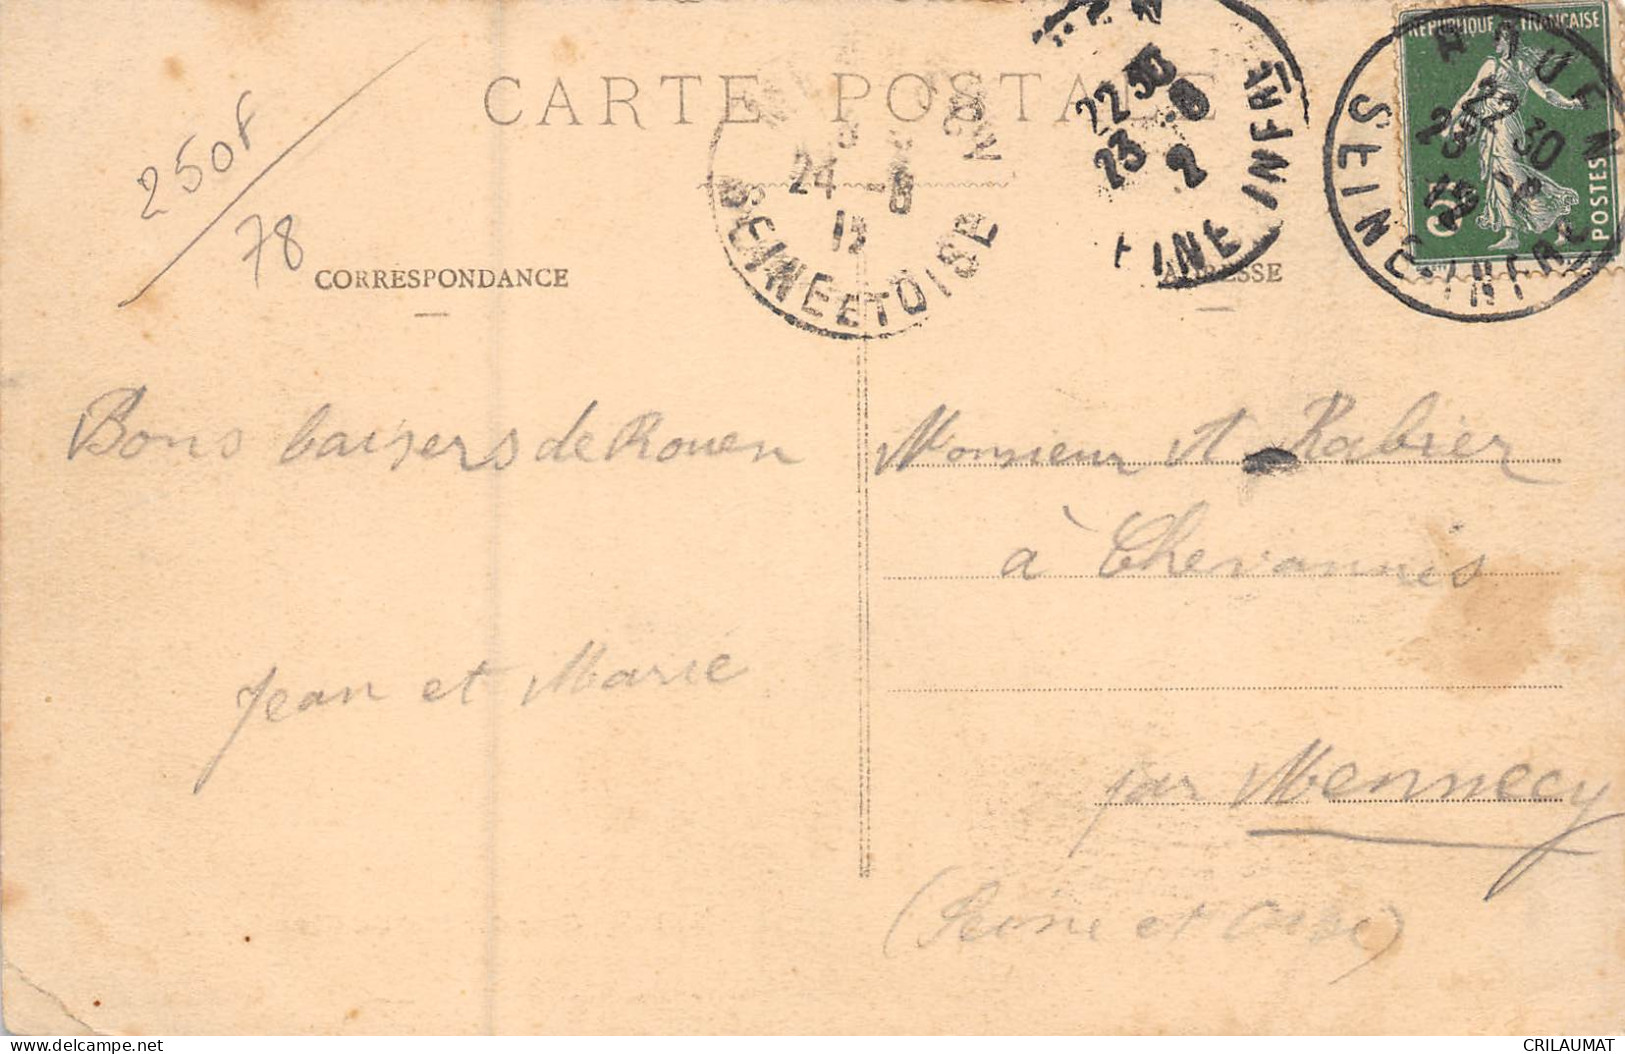 CARTE POSTALE
RÉPUBLIQUE FRANÇAISE
5
POSTES
ROUEN
22 30
23 -8
SEINE-INFRE
22 30
23 -8
2
INE INFRE
24 -8
SEINE ET OISE
250F
78
CORRESPONDANCE
ADRESSE
Bons baisers de Rouen
Jean et Marie
Monsieur A Rabier
à Chevannes
par Mennecy
(Seine et Oise)
Bons baisers de Rouen
CRILAUMAT